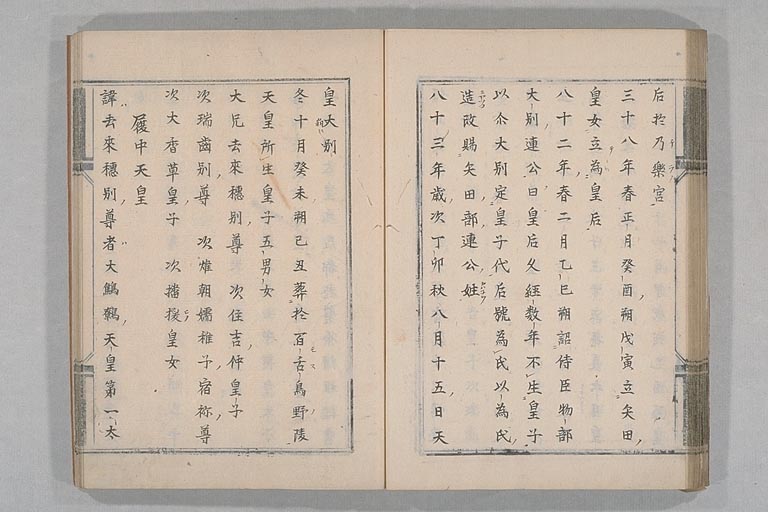 后於乃樂宮
三十八年春正月癸酉朔戊寅立矢田
皇女立為皇后
八十二年春二月乙巳朔詔侍臣物部
大別連公曰皇后久經數年不生皇子
以尒大別定皇子代后號為氏以為氏
造改賜矢田部連公姓
八十三年歲次丁卯秋八月十五日天
皇大別
冬十月癸未朔己丑葬於百舌鳥野陵
天皇所生皇子五男一女
大兄去來穗別尊 次住吉仲皇子
次瑞齒別尊 次雄朝嬬稚子宿祢尊
次大香草皇子 次播援皇女
履中天皇
諱去來穗別尊者大鷦鷯天皇第一太